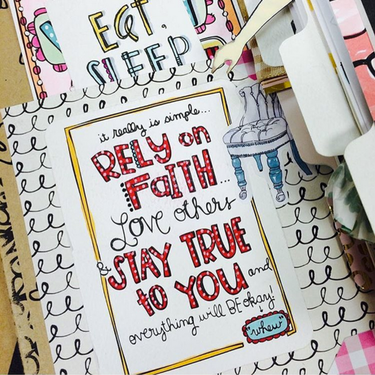 EAT,
SLEEP
it really is simple...
RELY on
FAITH...
Love others
& STAY TRUE
to YOU and
everything will BE okay!
"whew"